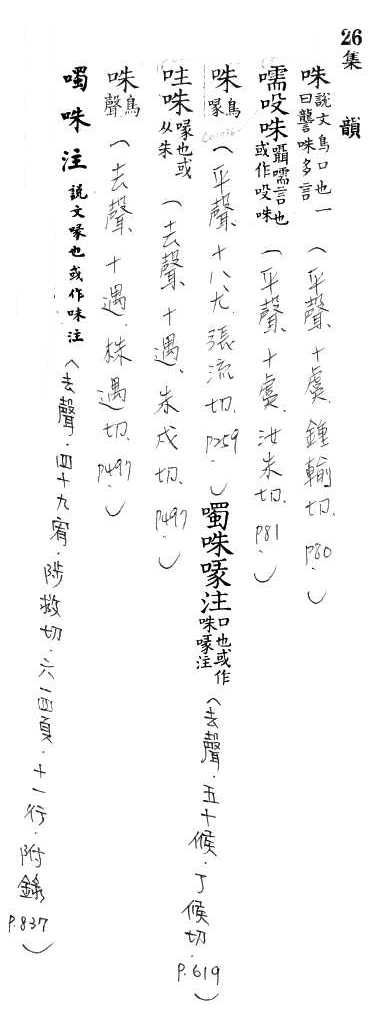 26集　韻
咮 說文鳥口也一曰讋咮多言（平聲、十虞、鍾輸切、P80.）
嚅吺咮 聶嚅言也或作吺咮（平聲、十虞、汝朱切、P81.）
咮 鳥喙（平聲、十八尤、張流切、P259.）
噣咮喙注 口也或作咮喙注（去聲．五十候．丁候切．P.619）
咮 喙也或从朱（去聲、十遇、朱戍切、P497.）
咮 鳥聲（去聲、十遇、株遇切、P497.）
噣咮注 說文喙也或作咮注（去聲．四十九宥．陟救切．六一四頁．十一行．附錄P.837）